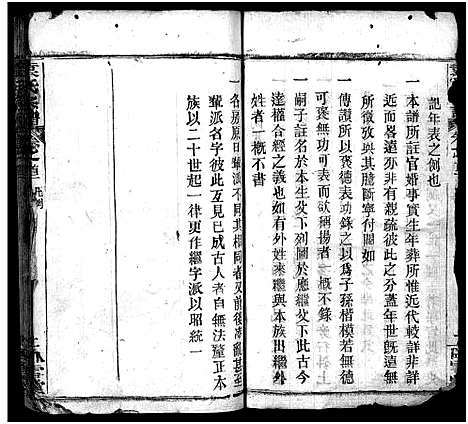 記年表之例也
一本譜所註官婚事實生年葬所惟近代較詳非詳
近而畧遠亦非有親疏彼此之分蓋年世旣遠無
所徵攷與其臆斷寧付闕如
一傳讚所以褒德表功錄之以爲子孫楷模若無德
可褒無功可表而欲稱揚者一槪不錄
一嗣子名於本生父下列圖於應繼父下
達權合經之義也如有外姓來繼與本族出繼外
姓者一槪不書
一各房原日輩派不同其相同者又前後淆亂甚至
輩派名字彼此互見已成古人者無法釐正本
族以二十世起一律更作繼字派以昭統一
袁氏宗譜 卷之首 凡例